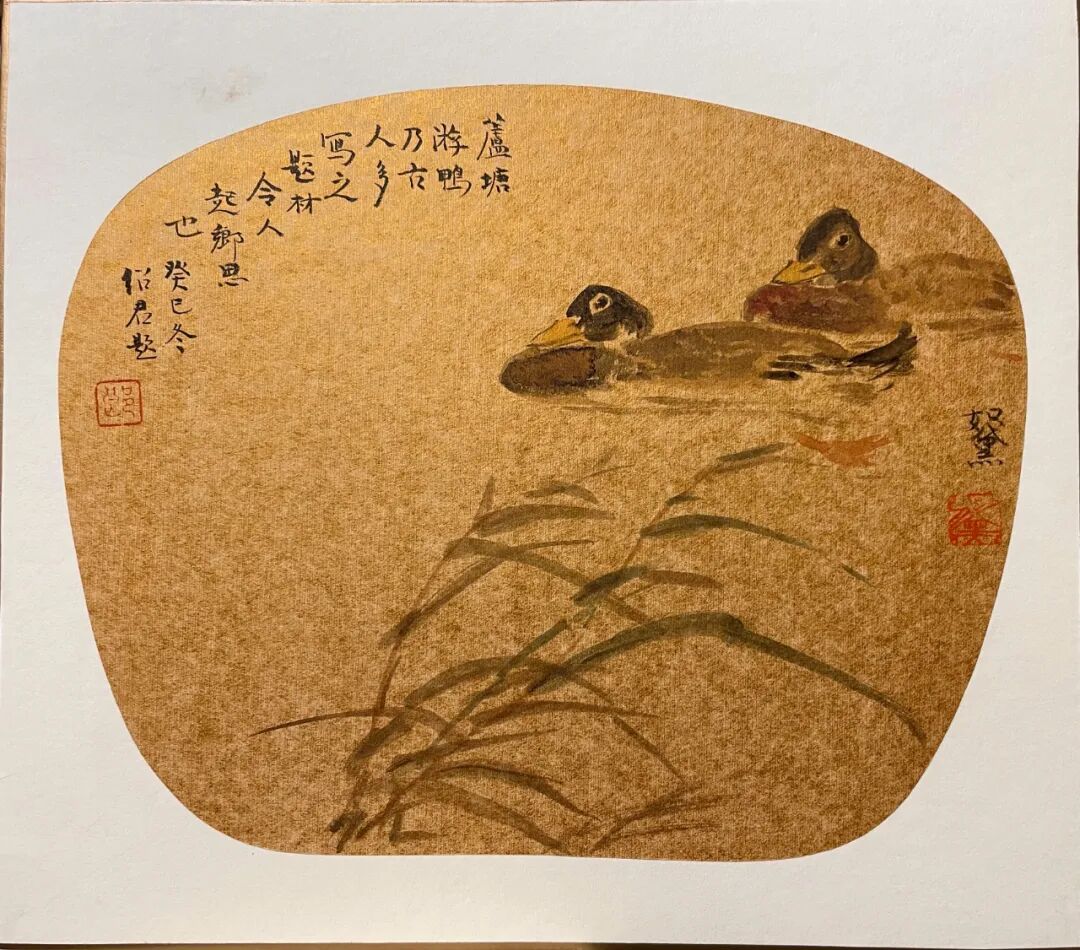 蘆塘
游鴨
乃古
人多
寫之
題材
令人
起鄉思
也
癸巳冬
紹君題
如黛